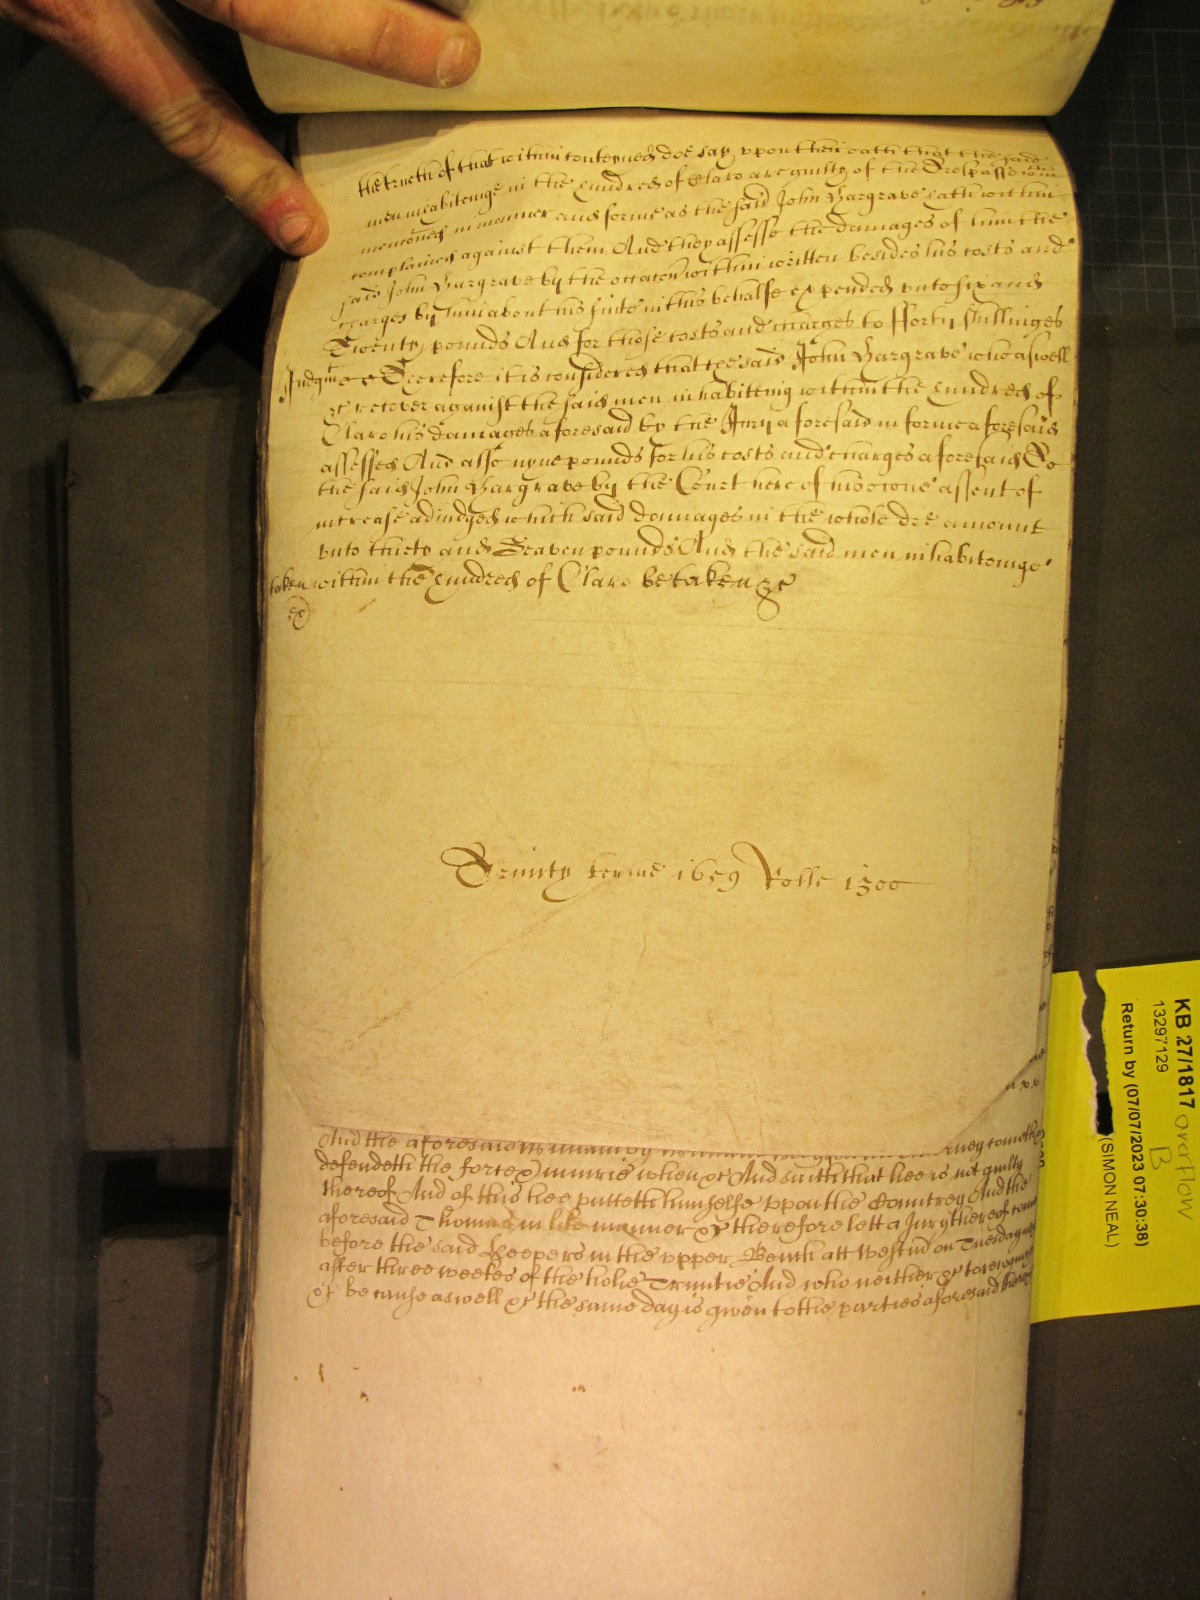 the trueth of that within conteyned doe say upon their oath that the said
men inhabiteinge in the hundred of Claro are guilty of the Trespasse within
menconed in manner and forme as the said John Hargrave hath within
complained against them And they assesse the damages of him the
said John Hargrave by the occacon within written besides his costs and
charges by him about his suite in this behalfe expended unto six and
Twenty pounds And for those costs and charges to fforty shillinges
Judgmt &c Therefore it is considered that the said John Hargrave who aswell
&c recover against the said men inhabitting within the hundred of
Claro his damages aforesaid by the Jury aforesaid in forme aforesaid
assessed And also nyne pounds for his costs and charges aforesaid To
the said John Hargrave by the Court here of assent of
increase adiudged which said damages in the whole doe amount
unto thirty and Seaven pounds And the said men inhabiteinge
taken within the hundred of Claro be taken &c
Trinity terme 1659 Rolle 1300
And the aforesaid
defendeth the force & iniurie when &c And saith that hee is not guilty
thereof And of this hee putteth himselfe upon the Countrey And the
aforesaid Thomas in like manner &c therefore lett a Jury thereof come
before the said Keepers in the upper Bench att Westmr on Tuesday
after three weekes of the holie Trinitie And who neither &c to recognize
&c because aswell &c the same day is given to the parties aforesaid there
KB 27/1817 overflow
13297129 B
Return by (07/07/2023 07:30:38)
(SIMON NEAL)